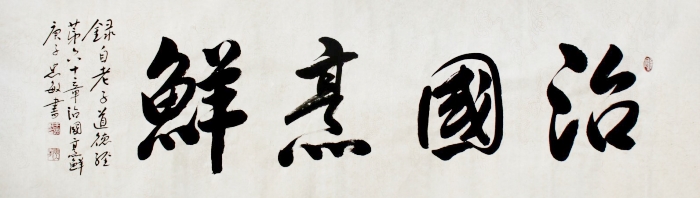 治國烹鮮
録自老子道德經
第六十章治國烹鮮
庚子 敏書